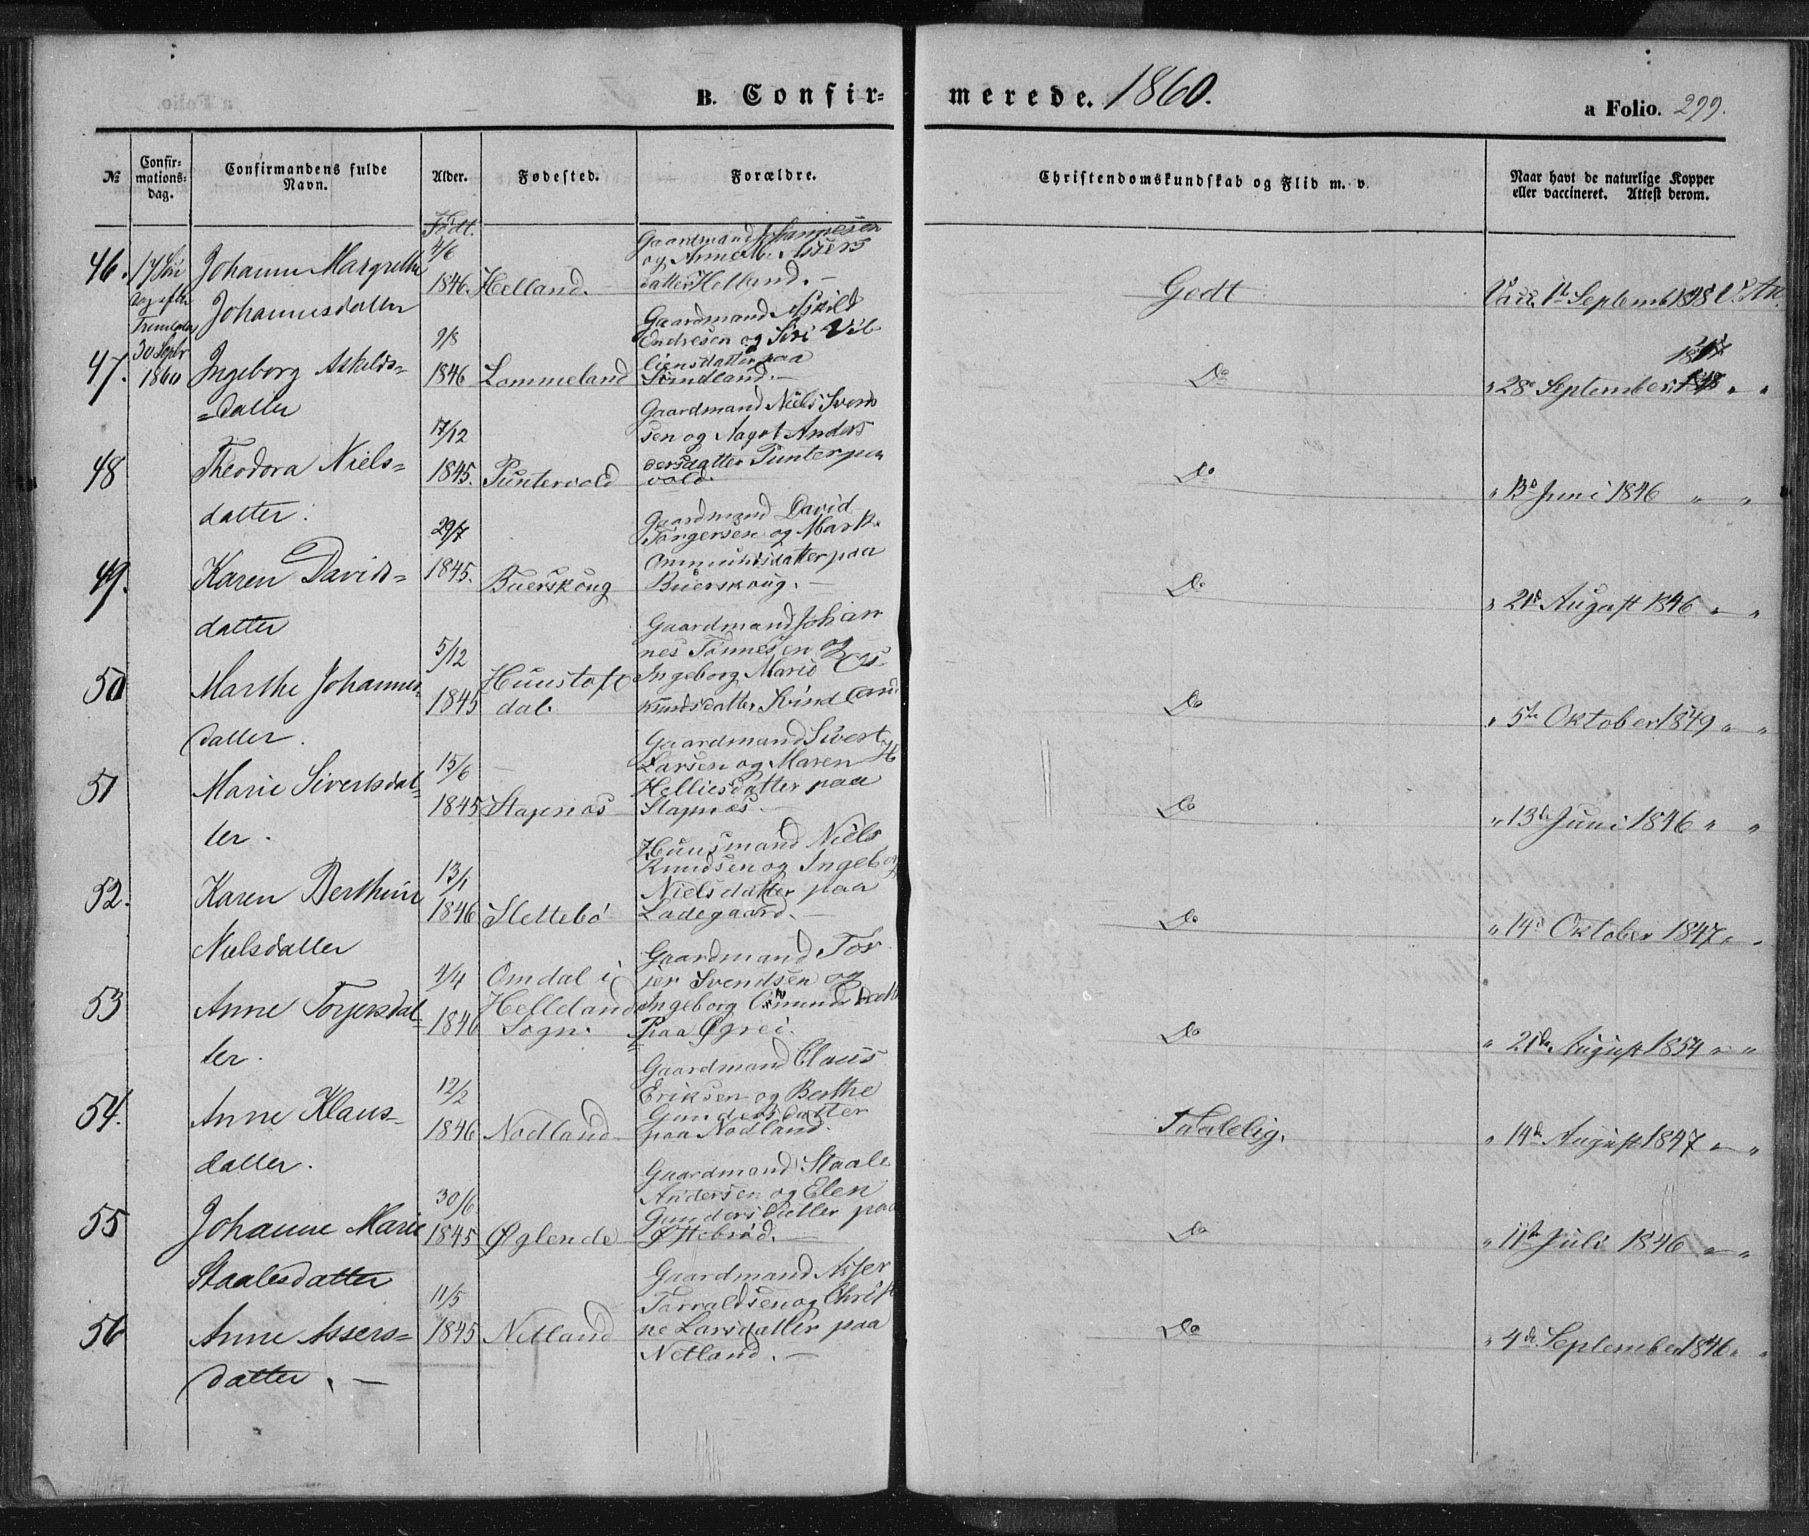 B. Confir-
merede. 1860.
a Folio. 299.
№
Confir-
mations-
dag.
Confirmandens fulde
Navn.
Alder.
Fødested.
Forældre.
Christendomskundskab og Flid m. v.
Naar havt de naturlige Kopper
eller vaccineret. Attest derom.
Født.
46.
17 Søn
dag efter
30 Septbr
1860
Johanne Margrethe
Johannesdatter
4/6
1846.
Helland.
Gaardmand Johannesen
og Anne M. Assers
datter Helland. —
Godt
Vacc. 1te Septemb 1848 V. At.
47.
Ingeborg Askilds=
=datter
9/8
1846
Lommeland
Gaardmand Askild
Endresen og Siri Vil
liensdatter paa
Svindland. —
Do
" 28e September 1847 " "
48
Theodora Niels=
datter.
17/12
1845.
Puntervold
Gaardmand Niels Svend
sen og Aagot Anders
dersdatter Punter paa
vold.
Do
" 13de Juni 1846 " "
49.
Karen Davids=
datter
29/7
1845.
Buerskoug
Gaardmand David
Torgersen og Mark.
Ommundsdatter paa
Buerskoug. —
Do
" 21d August 1846 " "
50
Marthe Johannes
datter.
5/12
1845
Huustoft
dal.
Gaardmand Johan
nes Tønnesen og
Ingeborg Marie As
kundsdatter Svindland
Do
" 5te Oktober 1849 " "
51
Marie Sivertsdat=
ter.
15/6
1845
Stapnæs
Gaardmand Sivert
Larsen og Maren H
Helliesdatter paa
Stapnæs. —
Do
" 13de Juni 1846 " "
52.
Karen Berthine
Nielsdatter
13/1
1846
Slettebø
Huusmand Niels
Knudsen og Ingeborg
Nielsdatter paa
Ladegaard. —
Do
" 14d Oktober 1847 " "
53
Anne Torjersdat=
ter.
4/4
1846
Omdal i
Helleland
Sogn.
Gaardmand Tor
jer Svendsen og
Ingeborg Omunds datter
paa Øgrei.
Do
" 21de August 1854 " "
54.
Anne Klaus=
datter.
12/2
1846
Nodland.
Gaardmand Claus
Eriksen og Berthe
Gundersdatter
paa Nodland.
Taalelig.
" 14de August 1847 " "
55
Johanne Marie
Staalesdatter
30/6
1845
Øglende
Gaardmand Staale
Andersen og Elen
Gundersdatter paa
Øftebrød. —
Do
" 11te Juli 1846 " "
56
Anne Assers=
datter. —
11/5
1845
Netland
Gaardmand Asser
Torvaldsen og Christ
ne Larsdatter paa
Netland. —
Do
" 4de September 1846 " "